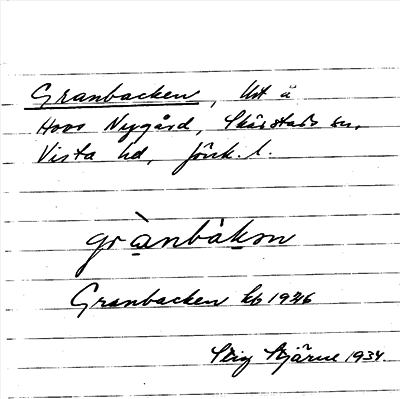 Granbacken, lht å
Hovs Nygård, Skärstads sn,
Vista hd, Jönk. l.
grànbàkən
Granbacken kb 1946
Stig Stjärne 1934.